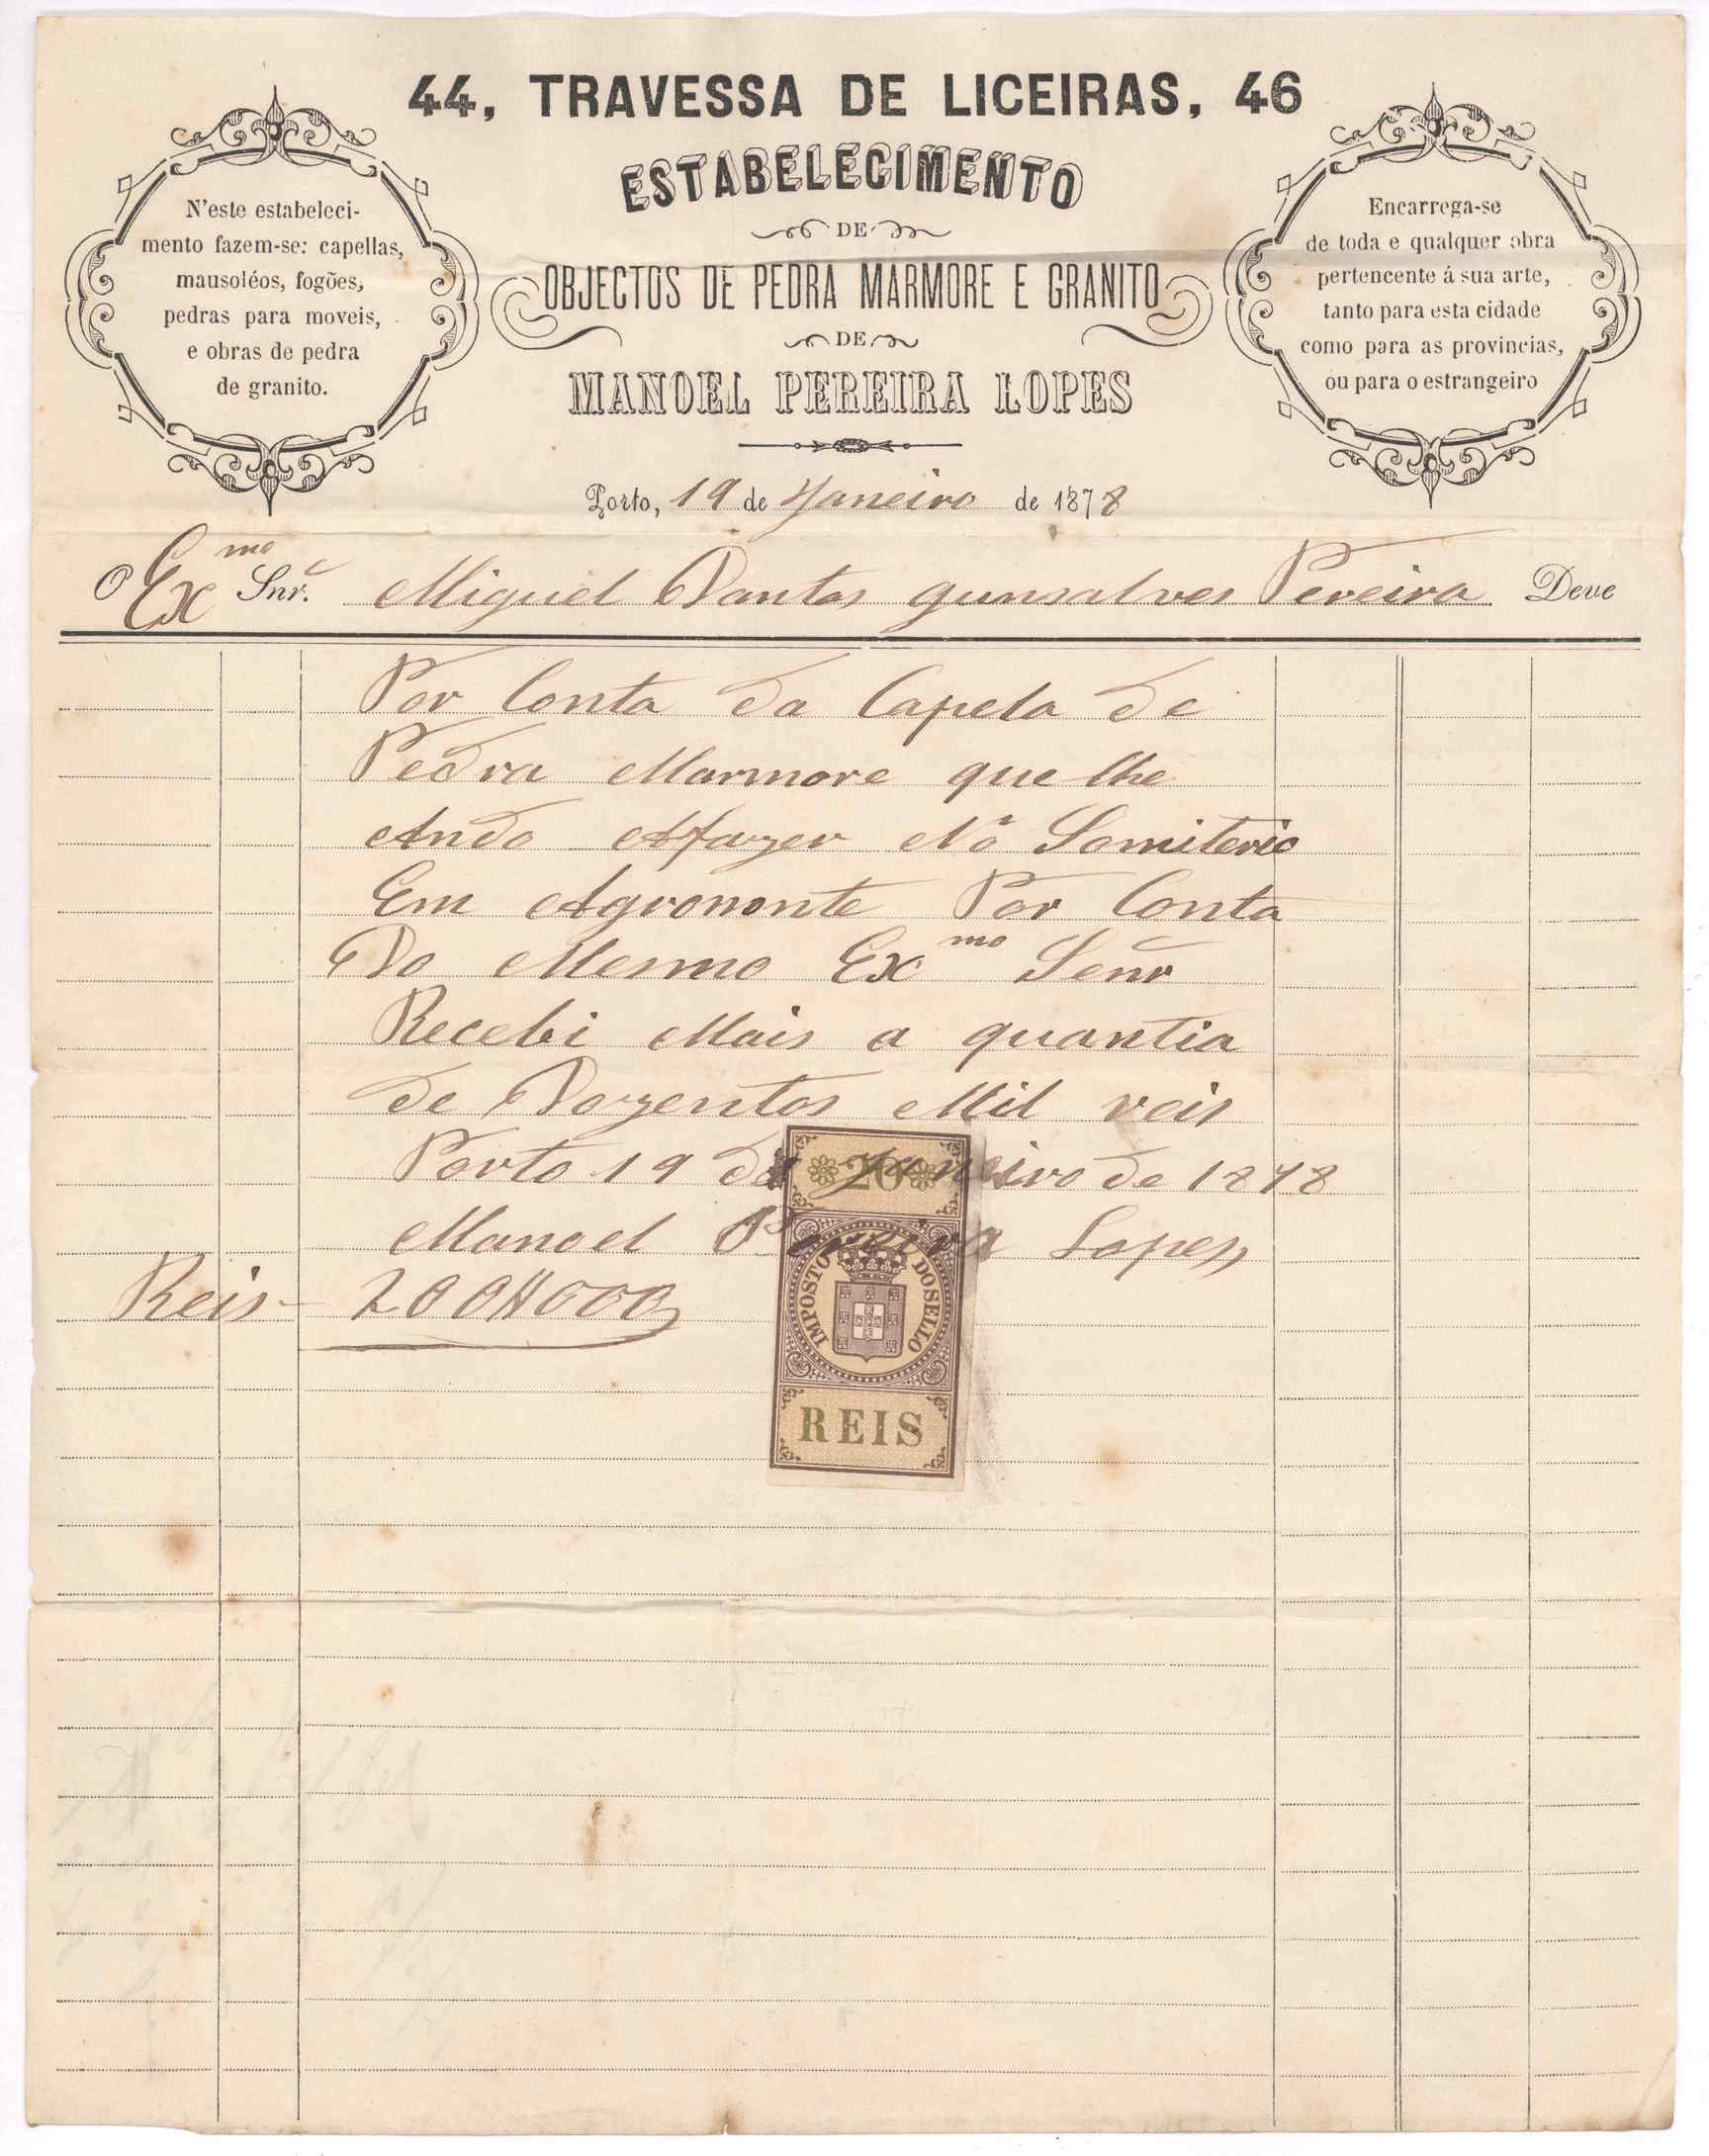 44, TRAVESSA DE LICEIRAS, 46
ESTABELECIMENTO
DE
OBJECTOS DE PEDRA MARMORE E GRANITO
DE
MANOEL PEREIRA LOPES
N'este estabeleci-
mento fazem-se: capellas,
mausoléos, fogões,
pedras para moveis,
e obras de pedra
de granito.
Encarrega-se
de toda e qualquer obra
pertencente á sua arte,
tanto para esta cidade
como para as provincias,
ou para o estrangeiro
Porto, 19 de Janeiro de 1878
O Exmo Snr. Miguel Dantas gunsalves Pereira Deve
Por Conta da Capela de
Pedra Marmore que lhe
Ando Afazer No Somiterio
Em Agromonte Por Conta
Do Mesmo Exmo Señr
Recebi Mais a quantia
de Dozentos Mil reis
Porto 19 de Janeiro de 1878
Manoel Pereira Lopes
Reis - 200$000
20
IMPOSTO DO SELLO
REIS